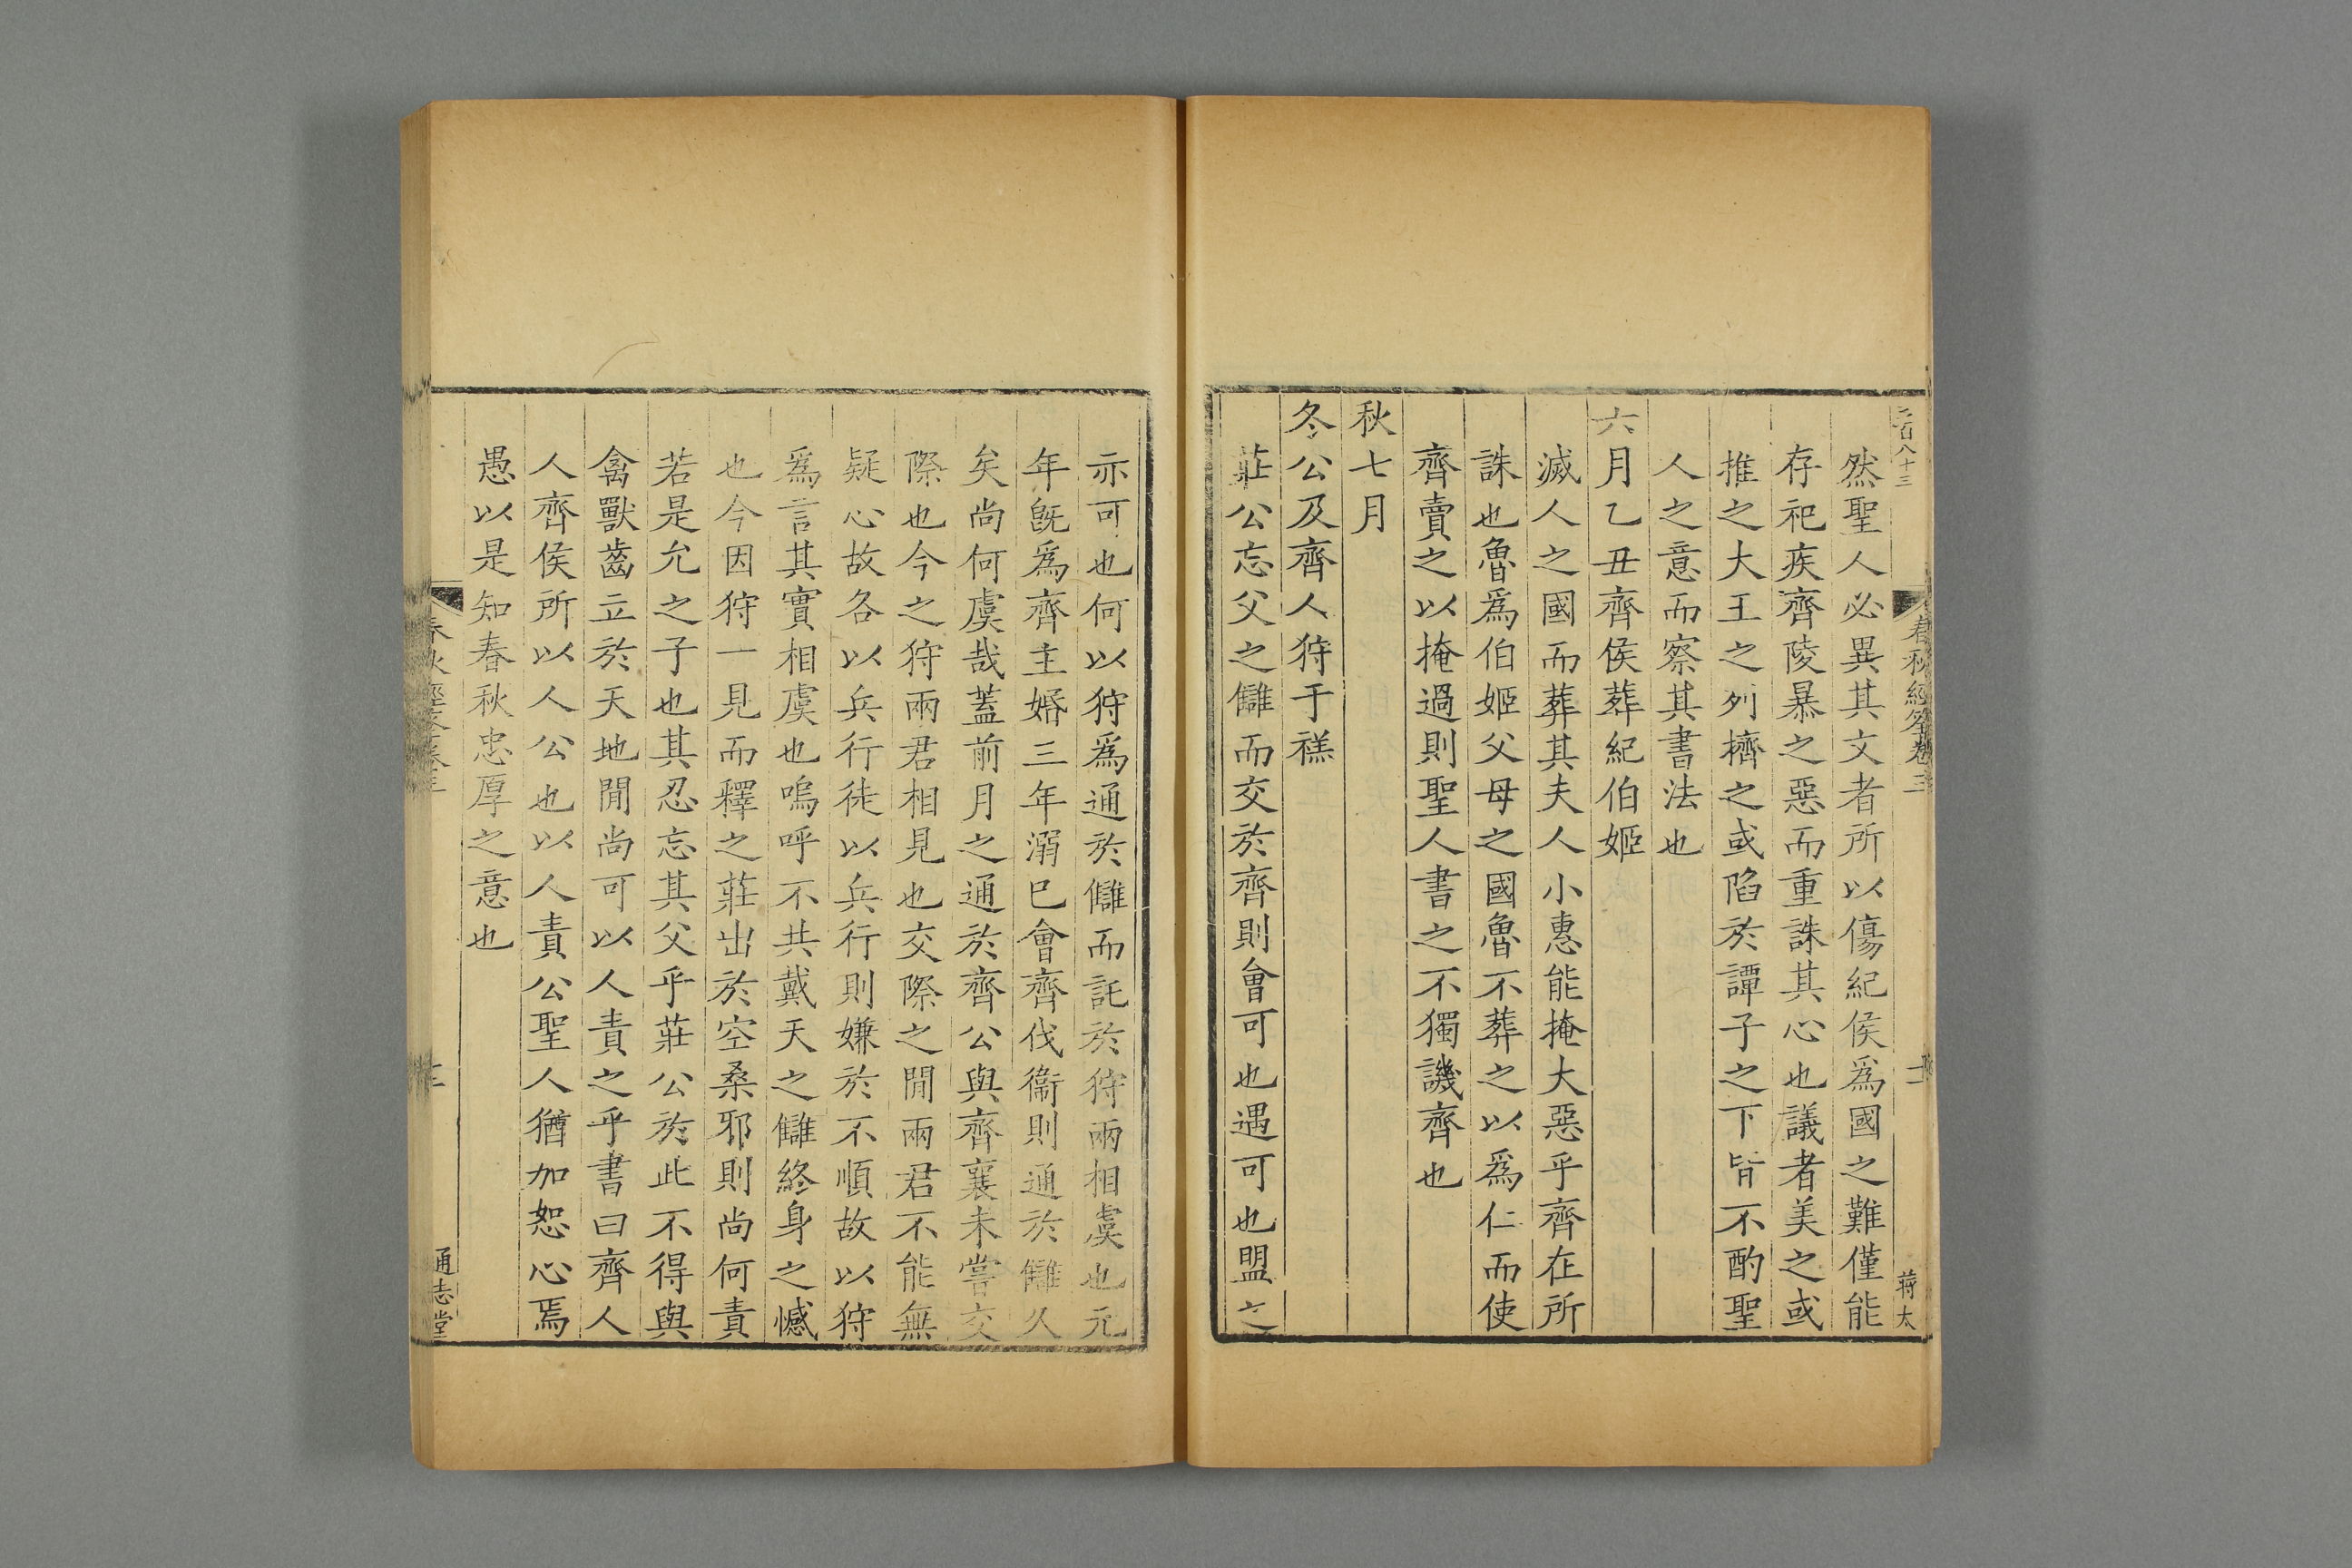 二百八十三
春秋經筌卷三
蔣太
然聖人必異其文者所以傷紀侯爲國之難僅能
存祀疾齊陵暴之惡而重誅其心也議者美之或
推之大王之列擠之或陷於譚子之下皆不酌聖
人之意而察其書法也
六月乙丑齊侯葬紀伯姬
滅人之國而葬其夫人小惠能掩大惡乎齊在所
誅也魯爲伯姬父母之國魯不葬之以爲仁而使
齊賣之以掩過則聖人書之不獨譏齊也
秋七月
冬公及齊人狩于禚
莊公忘父之讎而交於齊則會可也遇可也盟之
亦可也何以狩爲通於讎而託於狩兩相虞也元
年旣爲齊主婚三年溺巳會齊伐衞則通於讎久
矣尚何虞哉蓋前月之通於齊公與齊襄未嘗交
際也今之狩兩君相見也交際之閒兩君不能無
疑心故各以兵行徒以兵行則嫌於不順故以狩
爲言其實相虞也嗚呼不共戴天之讎終身之憾
也今因狩一見而釋之莊出於空桑邪則尚何責
若是允之子也其忍忘其父乎莊公於此不得與
禽獸齒立於天地閒尚可以人責之乎書曰齊人
人齊侯所以人公也以人責公聖人猶加恕心焉
愚以是知春秋忠厚之意也
通志堂